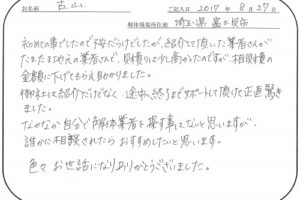 お名前 古山 ご記入日 2017年 8月 27日
解体現場所在地 埼玉県 富士見市
初めて事でしたので不安だらけでしたが、紹介して頂いた業者さんが
たまたま近くの業者さんで、見積りは少し高かったのですが、相見積の
金額に下げてもらえ助かりました。
御社には紹介だけでなく、途中、終りまでサポートして頂けて正直驚き
ました。
なかなか自分で解体業者を探す事はないと思いますが、
誰かに相談されたらおすすめしたいと思います。
色々お世話になりありがとうございました。